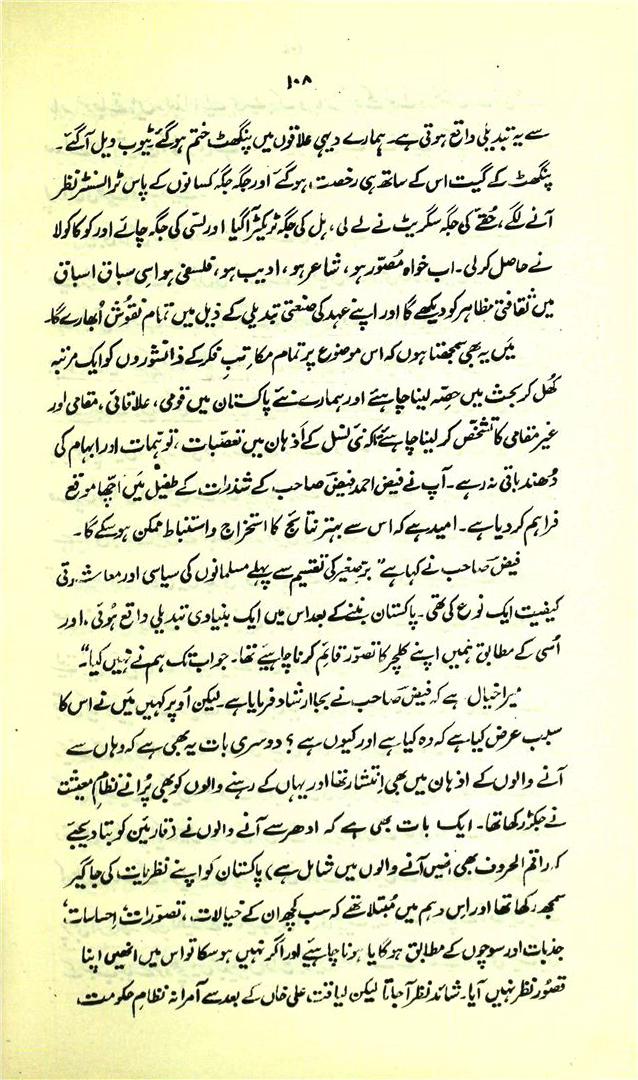 ۱۰۸
سے یہ تبدیلی واقع ہوتی ہے۔ ہمارے دیہی علاقوں میں پنگھٹ ختم ہوگئے ٹیوب ویل آگئے۔
پنگھٹ کے گیت اس کے ساتھ ہی رخصت ہوگئے اور جگہ جگہ کسانوں کے پاس ٹرانسسٹر نظر
آنے لگے، حُقّے کی جگہ سگریٹ نے لے لی، ہل کی جگہ ٹریکٹر آگیا اور لسّی کی جگہ چائے اور کوکاکولا
نے حاصل کرلی۔ اب خواہ مُصوّر ہو، شاعر ہو، ادیب ہو، فلسفی ہو اسی سباق اسباق
میں ثقافتی مظاہر کو دیکھے گا اور اپنے عہد کی صنعتی تبدیلی کے ذیل میں تمام نقُوش اُبھارے گا۔
میں یہ بھی سمجھتا ہوں کہ اس موضوع پر تمام مکاتبِ فکر کے دانشوروں کو ایک مرتبہ
کھُل کر بحث میں حصّہ لینا چاہئے اور ہمارے نئے پاکستان میں قومی، علاقائی، مقامی اور
غیر مقامی کا تشخّص کر لینا چاہئے تاکہ نئی نسل کے اَذہان میں تعصّبات، توہّمات اور ابہام کی
دُھند باقی نہ رہے۔ آپ نے فیض احمد فیضؔ صاحب کے شذرات کے طفیل میں اچھا موقع
فراہم کردیا ہے۔ امید ہے کہ اس سے بہتر نتائج کا استخراج و استنباط ممکن ہوسکے گا۔
فیضؔ صاحب نے کہا ہے "برّصغیر کی تقسیم سے پہلے مسلمانوں کی سیاسی اور معاشرتی
کیفیت ایک نوع کی تھی۔ پاکستان بننے کے بعد اس میں ایک بنیادی تبدیلی واقع ہُوئی، اور
اُسی کے مطابق ہمیں اپنے کلچر کا تصوّر قائم کرنا چاہیئے تھا۔ جو اب تک ہم نے نہیں کیا"۔
میرا خیال ہے کہ فیضؔ صاحب نے بجا ارشاد فرمایا ہے۔ لیکن اُوپر کہیں میں نے اس کا
سبب عرض کیا ہے کہ وہ کیا ہے اور کیوں ہے؟ دوسری بات یہ بھی ہے کہ وہاں سے
آنے والوں کے اذہان میں بھی اِنتشار تھا اور یہاں کے رہنے والوں کو بھی پُرانے نظامِ معیشت
نے جکڑ رکھا تھا۔ ایک بات بھی ہے کہ ادھر سے آنے والوں نے (قارئین کو بتا دیجیے
کہ راقم الحروف بھی اُنہیں آنے والوں میں شامل ہے) پاکستان کو اپنے نظریات کی جاگیر
سمجھ رکھا تھا اور اِس وہم میں مُبتلا تھے کہ سب کچھ ان کے خیالات، تصوّرات، اِحساسات،
جذبات اور سوچوں کے مطابق ہوگا یا ہونا چاہیئے اور اگر نہیں ہوسکا تو اس میں انھیں اپنا
قصور نظر نہیں آیا۔ شائد نظر آجاتا لیکن لیاقت علی خاں کے بعد سے آمرانہ نظامِ حکومت،